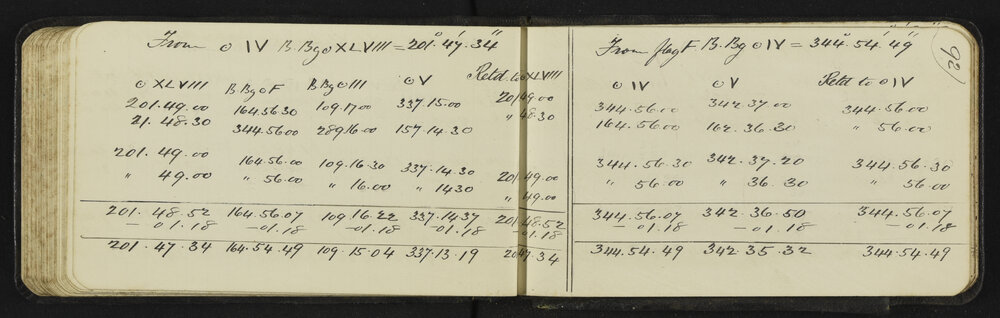 From ⊙ IV B.Bg ⊙ XLVIII = 201° 47' 34"
⊙ XLVIII B Bg ⊙ F B Bg ⊙ III ⊙ V Retd. to ⊙ XLVIII
201.49.00 164.56.30 109.17.00 337.15.00 201.49.00
21.48.30 344.56.00 289.16.00 157.14.30 " 48.30
201.49.00 164.56.00 109.16.30 337.14.30 201.49.00
" 49.00 " 56.00 " 16.00 " 14 30 " 49.00
201.48.52 164.56.07 109.16.22 337.14.37 201.48.52
- 01.18 - 01.18 - 01.18 - 01.18 - 01.18
201.47.34 164.54.49 109.15.04 337.13.19 201.47.34
92
From flag F B.Bg ⊙ IV = 344° 54' 49"
⊙ IV ⊙ V Retd to ⊙ IV
344.56.00 342.37.00 344.56.00
164.56.00 162.36.30 " 56.00
344.56.30 342.37.20 344.56.30
" 56.00 " 36.30 " 56.00
344.56.07 342.36.50 344.56.07
- 01.18 - 01.18 - 01.18
344.54.49 342.35.32 344.54.49